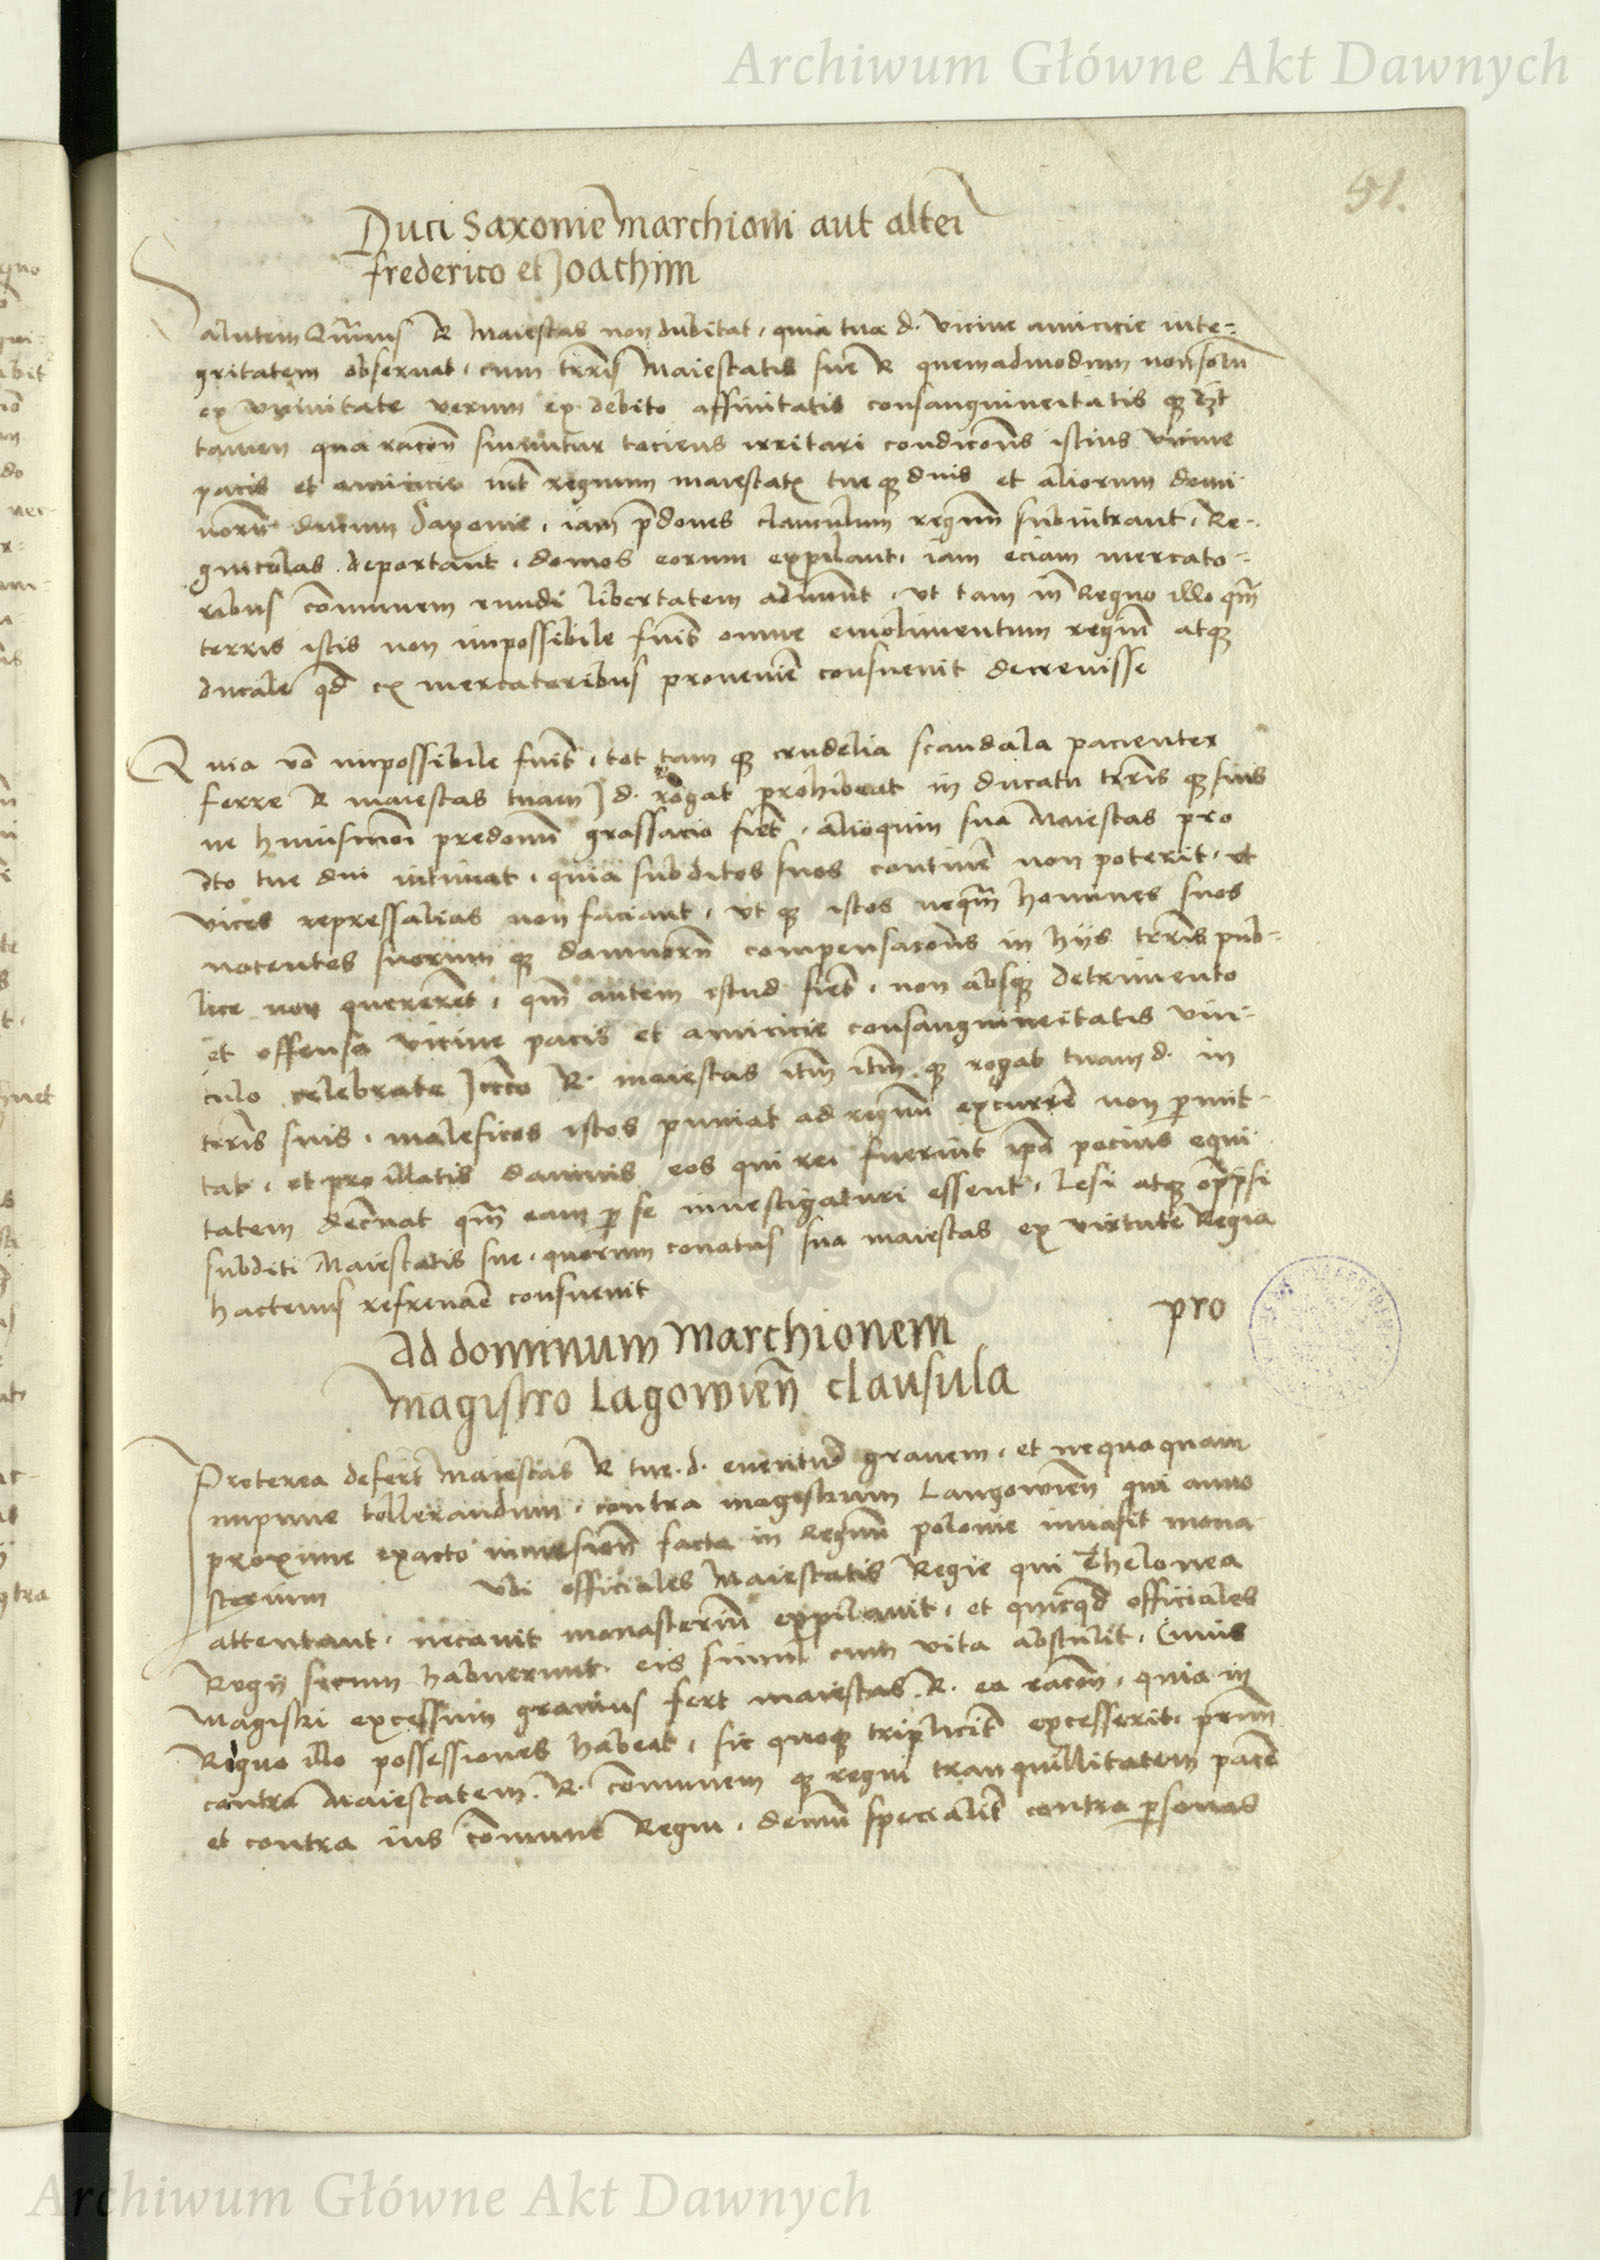 Archiwum Główne Akt Dawnych
51.
Duci Saxonie marchioni aut alteri
frederico et Joachim
Salutem Qm̄uis R Maiestas non dubitat, quia tua d. vicine amicicie inte-
gritatem obseruat, cum tr̄ris Maiestatis sue R quemadmodum non solū
ex vicinitate verum ex debito affinitatis consanguineitatis qꝫ
tamen qua racōn sinuntur tociens irritari condicōns istius vicine
pacis et amicicie int̄ regnum maiestatꝭ tue qꝫ dnis et aliorum domi
norū ducum Saxonie, iam p̄dones clanculum regnū subintrant, Re-
gnicolas deportant, domos eorum expilant, iam eciam mercato-
ribus cōmunem eundi libertatem adimūt, vt tam in Regno illo qm̄
terris istis non impossibile fuīt omne emolimentum regiū atqꝫ
ducale qd ex mercatoribus proueniē consueuit decreuisse
Quia vo impossibile fuīt, tot tam qꝫ crudelia scandala pacienter
ferre R maiestas tuam d. rogat prohibeat in ducatu tr̄ris qꝫ suis
ne huiusmōi predonū grassacio fiet, alioquin sua Maiestas pro
dto tue dni intimat, quia subditos suos continē non poterit, vt
vices repressalias non faciant, vt qꝫ istos neqm̄ homines suos
nocentes suorum qꝫ damnorū compensacōns in hijs tr̄ris pub-
lice non quererēt, qm̄ autem istud fiet, non absqꝫ detrimento
et offensa vicine pacis et amicicie consanguineitatis vin-
culo celebrate Iccco R. maiestas itm̄ itm̄ qꝫ rogat tuam d. in
tr̄ris suis, maleficos istos puniat ad regnū excurrē non pmit-
tat, et pro illatis damnis eos qui rei fuerint ipa pocius equi
tatem decn̄at qm̄ eam p se inuestigaturi essent, Lesi atqꝫ opp̄ssi
subditi Maiestatis sue, quorum conatus sua maiestas ex virtute Regia
hactenus refrenāe consueuit
pro
Ad dominum Marchionem
magistro Lagowien̄ clausula
Preterea defert Maiestas R tue. d. euentum grauem, et nequaquam
impune tollerandum, contra magistrum Langowien̄ qui anno
proxime exacto incursion̄ facta in Regnū polonie inuasit mona
sterium vbi officiales Maiestatis Regie qui Thelonea
attentant, necauit monasteriū expilauit, et quicqd officiales
Regij secum habuerunt eis simul cum vita abstulit, Cuius
Magistri excessum grauius fert maiestas. R. ea racōn, quia in
Regno illo possessiones habeat, sic quoqꝫ triplicit̄ excesserit, primū
contra Maiestatem. R. cōmunem qꝫ regni tranquillitatem pacē
et contra ius cōmune Regni, demū specialit̄ contra psonas
Archiwum Główne Akt Dawnych